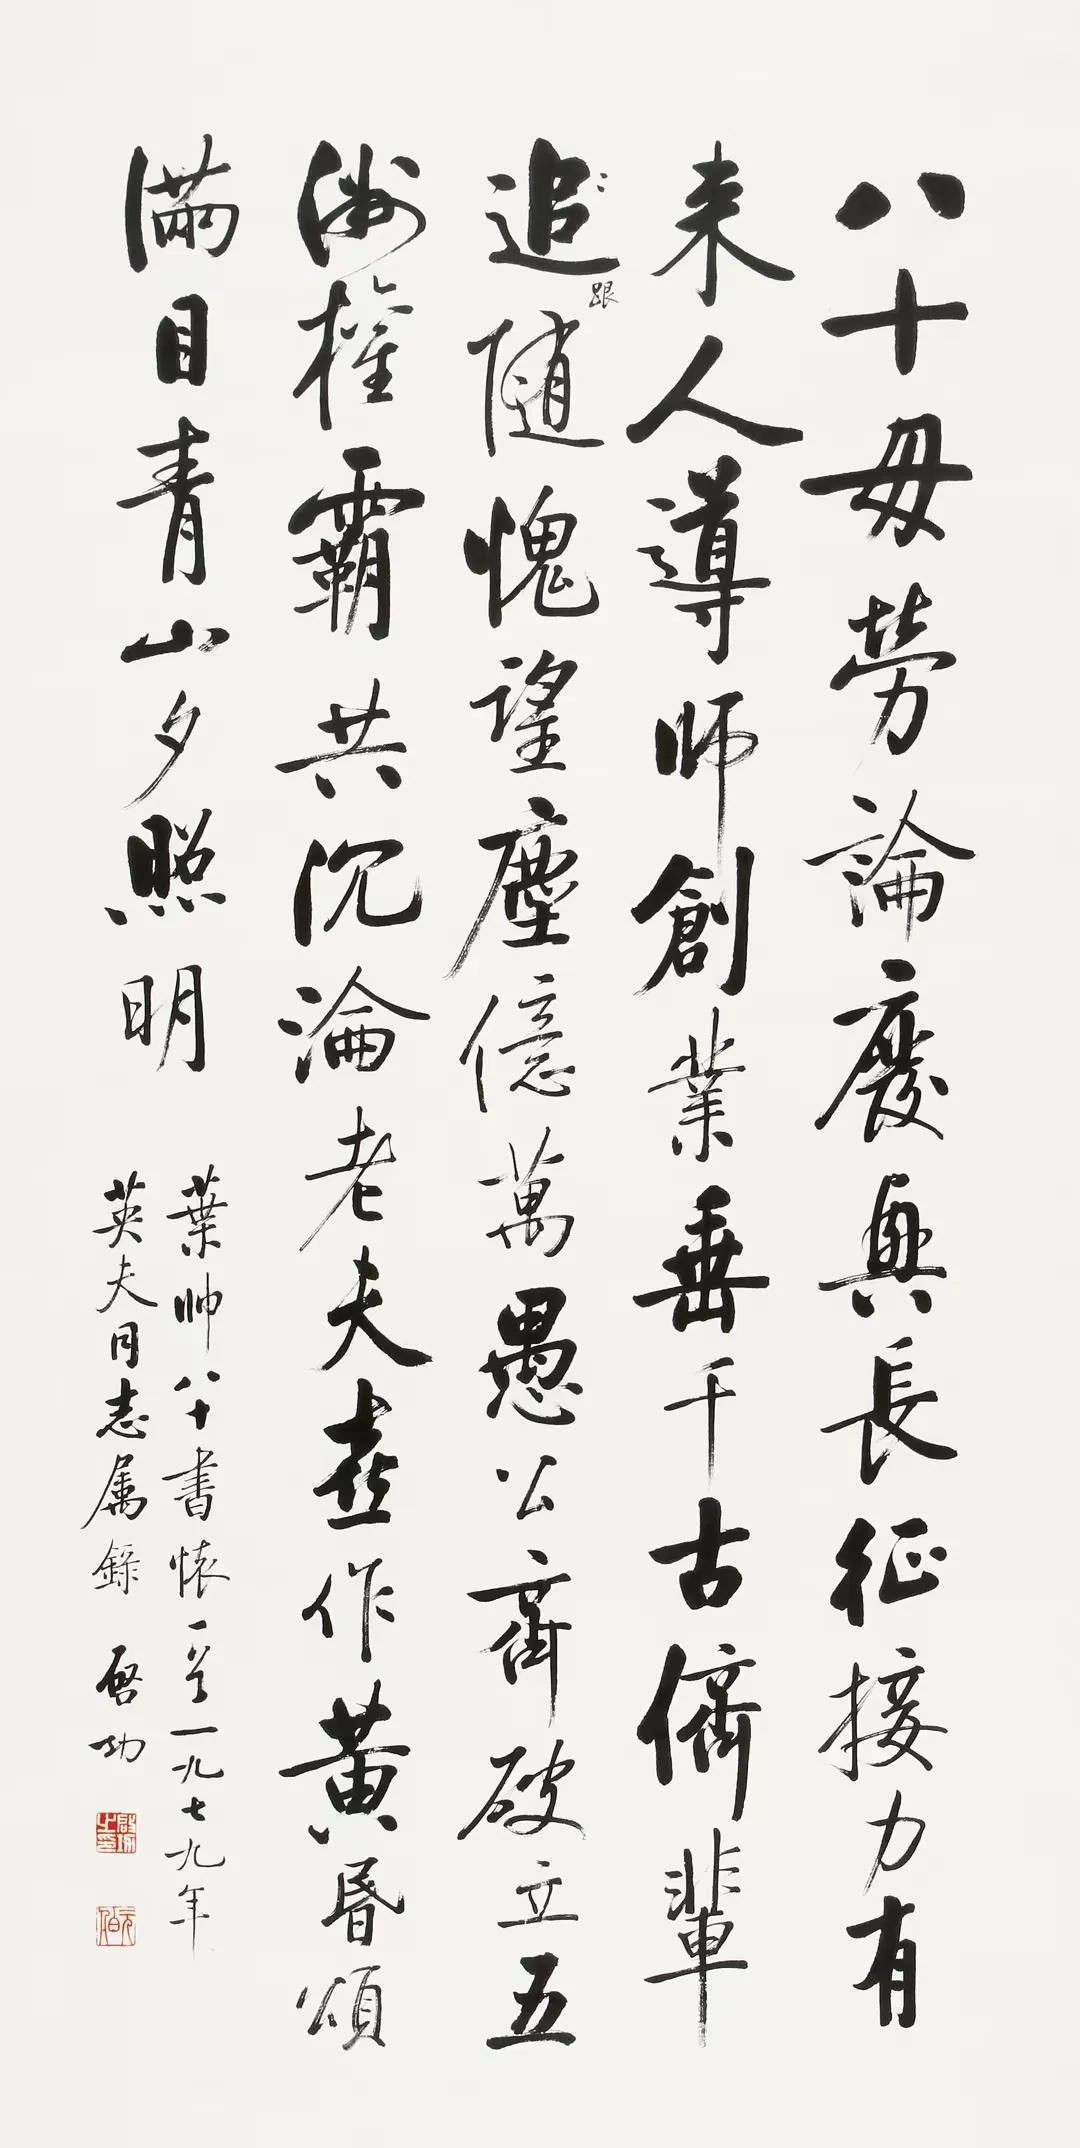 八十毋勞論廢興長征接力有
来人導師創業垂千古儕輩
追随愧望塵億萬愚公齊破立五
跟
洲權霸共沉淪老夫喜作黄昏頌
滿目青山夕照明
葉帥八十書懷一首一九七九年
英夫同志属錄 启功
啟功之印
元白